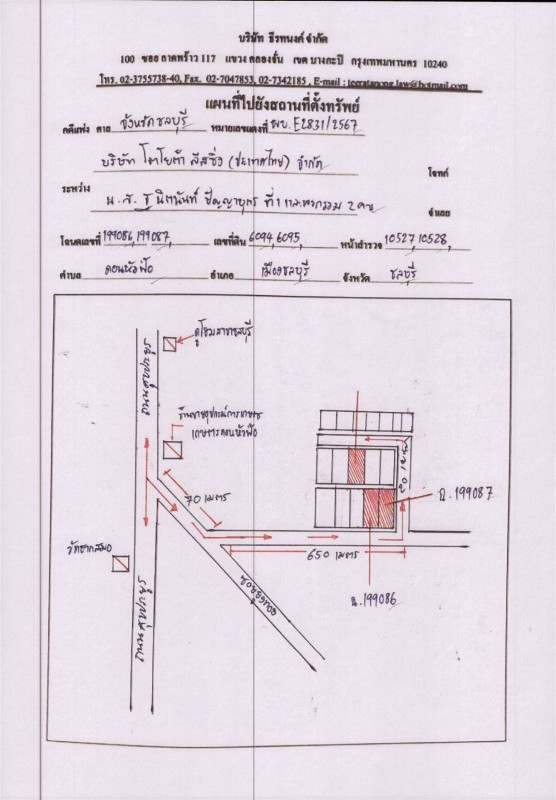 บริษัท ธีรทนงค์ จำกัด
100 ซอย ลาดพร้าว 117 แขวง คลองจั่น เขต บางกะปิ กรุงเทพมหานคร 10240
โทร. 02-3755738-40, Fax. 02-7047853, 02-7342185 , E-mail : teeratanong.law@hotmail.com
แผนที่ไปยังสถานที่ตั้งทรัพย์
คดีแพ่ง ศาล จังหวัดชลบุรี หมายเลขแดงที่ ผบ.E2831/2567
บริษัท โตโยต้า ลีสซิ่ง (ประเทศไทย) จำกัด โจทก์
ระหว่าง
น.ส. ฐนิตนันท์ ปัญญาบุตร ที่ 1 2 คน จำเลย
โฉนดเลขที่ 199086,199087, เลขที่ดิน 6094,6095, หน้าสำรวจ 10527,10528,
ตำบล ดอนหัวฬ่อ อำเภอ เมืองชลบุรี จังหวัด ชลบุรี
ถนนสุขประยูร
ดูโฮมสาขาชลบุรี
70 เมตร
ฉ.199087
650 เมตร
ฉ.199086
ถนนสุขประยูร